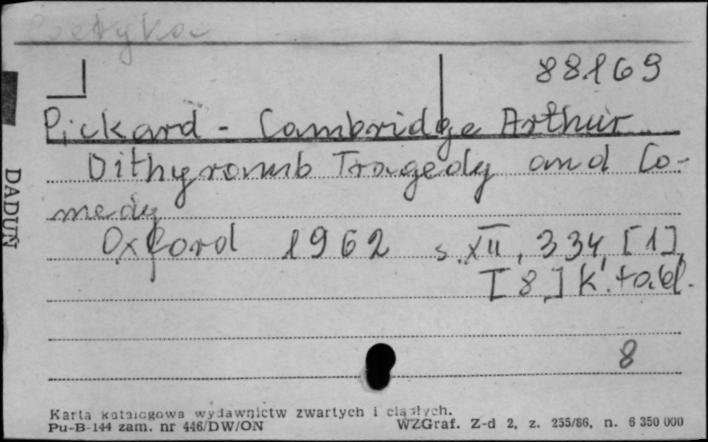 Poetyka
88169
Pickard - Cambridge Arthur
Dithyramb Tragedy and Co-
medy
Oxford 1962 s. XII, 334, [1],
[8] k. tabl.
8
DADUŃ
Karta katalogowa wydawnictw zwartych i ciągłych.
Pu-B-144 zam. nr 446/DW/ON WZGraf. Z-d 2, z. 255/86, n. 6 350 000